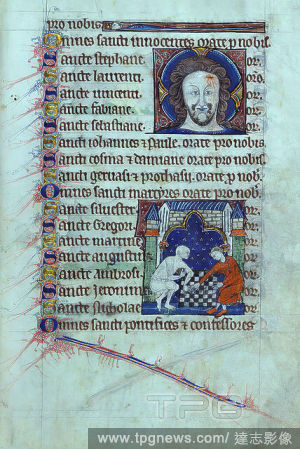 pro nobis.
Omnes sancti innocentes orate p nobis.
Sancte stephane. or.
Sancte laurenti. oro.
Sancte vincenti. or.
Sancte fabiane. or.
Sancte sebastiane. or.
Sancti iohannes & paule. orate pro nobis
Sancti cosma & damiane orate pro nobis.
Sancti gervasi & prothasii. orate p. nob.
Omnes sancti martyres orate pro nob.
Sancte silvester or.
Sancte Gregori or.
Sancte martine or.
Sancte augustine or.
Sancte ambrosi. or.
Sancte Jeronime or.
Sancte Nicholae or.
Omnes sancti pontifices & confessores
TPG
www.tpgnews.com/ 達志影像